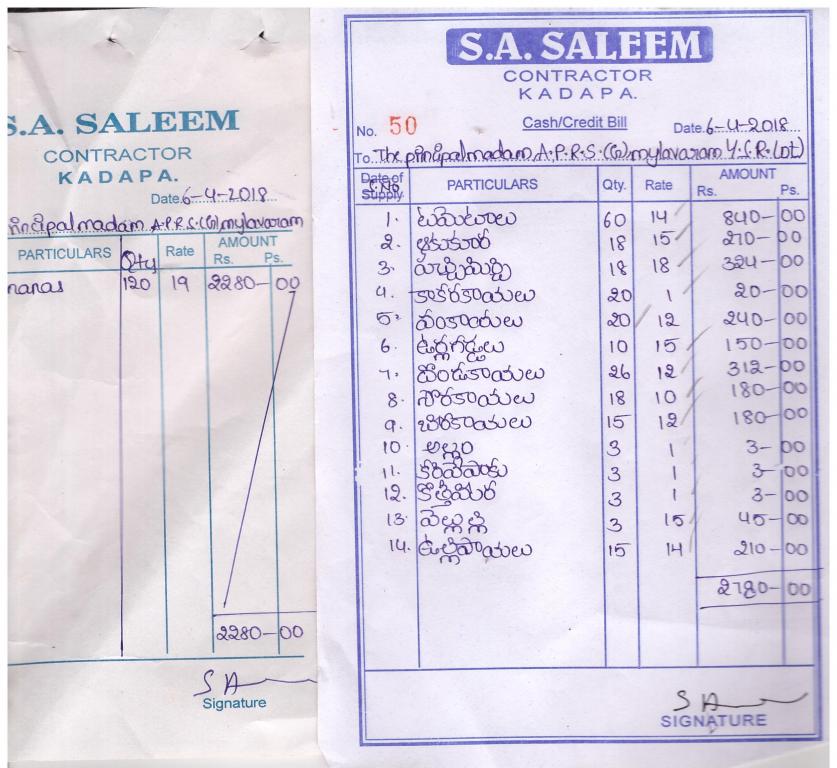 S.A. SALEEM
CONTRACTOR
KADAPA.
Date 6-4-2018
principal madam, A.P.R.S.(G) mylavaram
PARTICULARS Qty Rate AMOUNT
Rs. Ps.
nanas 120 19 2280-00
2280-00
SA
Signature
S.A. SALEEM
CONTRACTOR
KADAPA.
No. 50 Cash/Credit Bill Date. 6-4-2018
To The principal madam, A.P.R.S.(G) mylavaram Y.S.R.(Dt)
Date of Supply S.No PARTICULARS Qty. Rate AMOUNT
Rs. Ps.
1. టమెటాలు 60 14 840-00
2. ఆకుకూర 18 15 270-00
3. పచ్చిమిర్చి 18 18 324-00
4. కాకరకాయలు 20 1 20-00
5. వంకాయలు 20 12 240-00
6. ఉర్లగడ్డలు 10 15 150-00
7. దొండకాయలు 26 12 312-00
8. సొరకాయలు 18 10 180-00
9. బీరకాయలు 15 12 180-00
10. అల్లం 3 1 3-00
11. కరివేపాకు 3 1 3-00
12. కొత్తిమిర 3 1 3-00
13. వెల్లుల్లి 3 15 45-00
14. ఉల్లిపాయలు 15 14 210-00
2780-00
SA
SIGNATURE